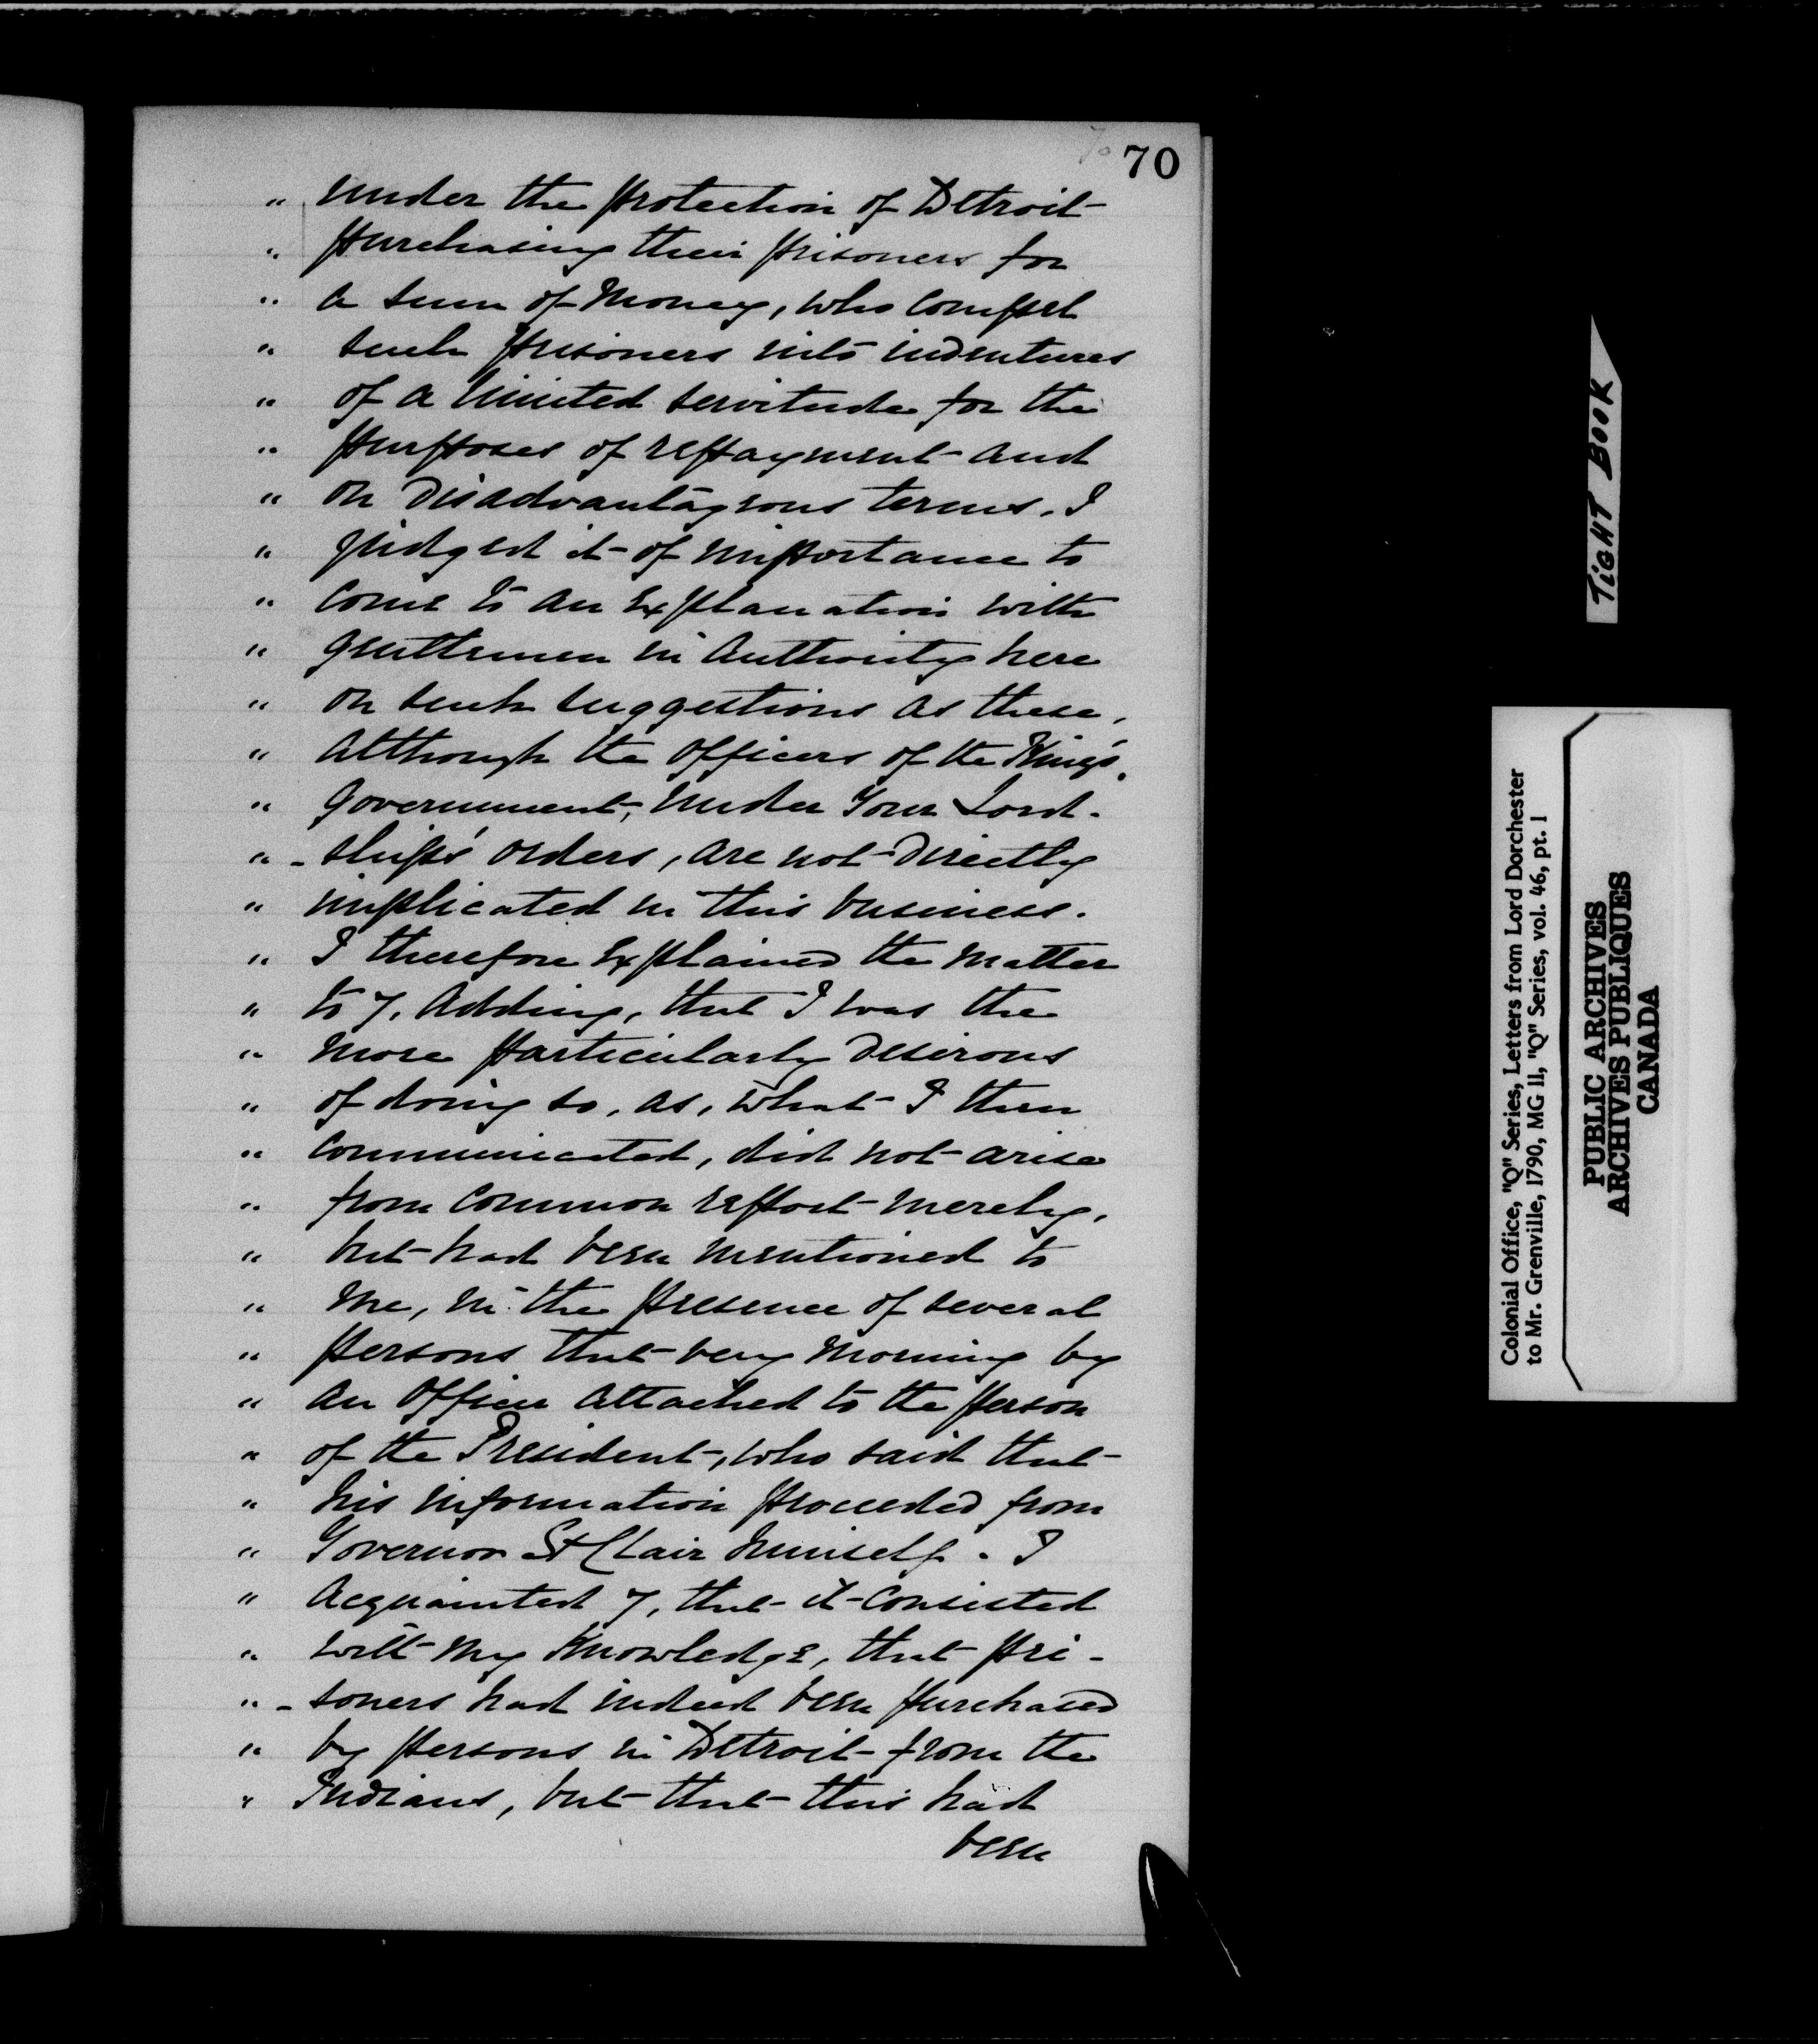 70
" under the protection of Detroit
" purchasing their prisoners for
" a sum of Money, who compel
" such prisoners into indentures
" of a limited servitude for the
" purposes of repayment and
" on disadvantageous terms. I
" judged it of importance to
" come to an explanation with
" gentlemen in Authority here
" on such suggestions as these,
" Although the Officers of the King's
" Government, under Your Lord-
" -ship's orders, are not directly
" implicated in this business.
" I therefore explained the matter
" to 7, Adding, that I was the
" more particularly desirous
" of doing so, as, what I then
" communicated, did not arise
" from common report merely,
" but had been mentioned to
" me, in the presence of several
" persons that very Morning by
" an Officer Attached to the person
" of the President, who said that
" his information proceeded from
" Governor St Clair himself. I
" Acquainted 7, that it consisted
" with my Knowledge, that pri-
" -soners had indeed been purchased
" by persons in Detroit from the
" Indians, but that this had
been
TIGHT BOOK
Colonial Office, "Q" Series, Letters from Lord Dorchester
to Mr. Grenville, 1790, MG 11, "Q" Series, vol. 46, pt. 1
PUBLIC ARCHIVES
ARCHIVES PUBLIQUES
CANADA